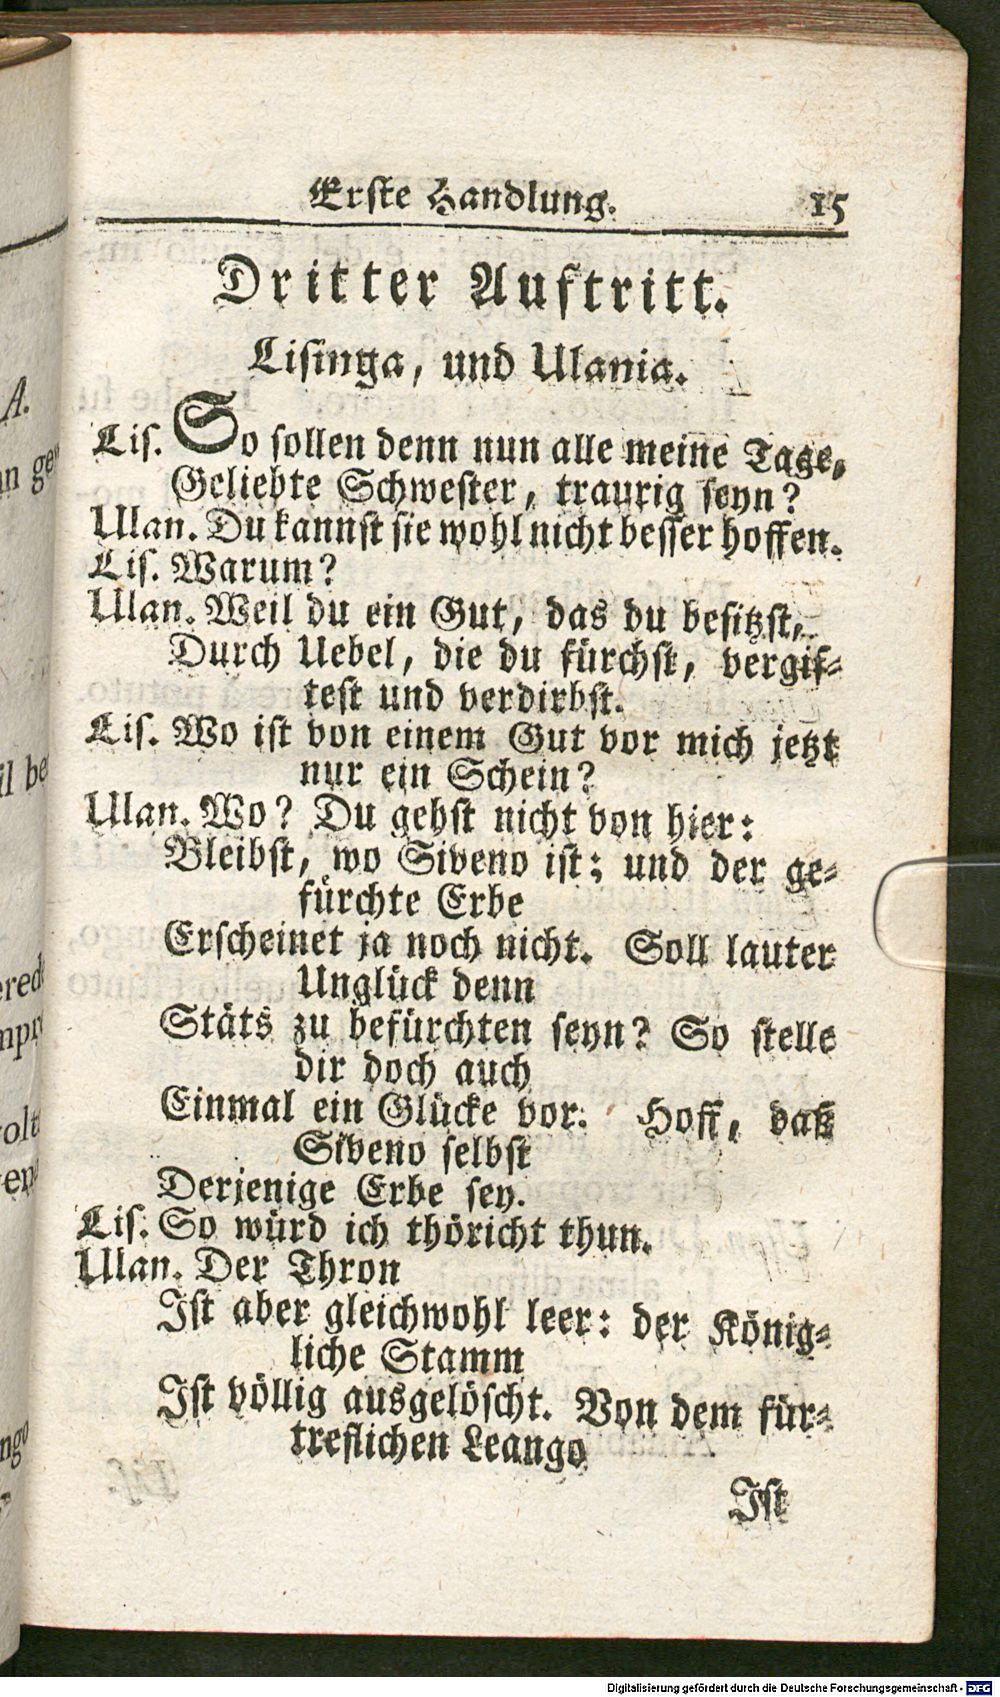 Erste Handlung. 15
Dritter Auftritt.
Lisinga, und Ulania.
Lis. So sollen denn nun alle meine Tage,
Geliebte Schwester, traurig seyn?
Ulan. Du kannst sie wohl nicht besser hoffen.
Lis. Warum?
Ulan. Weil du ein Gut, das du besitzst,
Durch Uebel, die du fürchst, vergif-
test und verdirbst.
Lis. Wo ist von einem Gut vor mich jetzt
nur ein Schein?
Ulan. Wo? Du gehst nicht von hier:
Bleibst, wo Siveno ist; und der ge-
fürchte Erbe
Erscheinet ja noch nicht. Soll lauter
Unglück denn
Stäts zu befürchten seyn? So stelle
dir doch auch
Einmal ein Glücke vor. Hoff, daß
Siveno selbst
Derjenige Erbe sey.
Lis. So würd ich thöricht thun.
Ulan. Der Thron
Ist aber gleichwohl leer: der König-
liche Stamm
Ist völlig ausgelöscht. Von dem für-
treflichen Leango
Ist
Digitalisierung gefördert durch die Deutsche Forschungsgemeinschaft - DFG